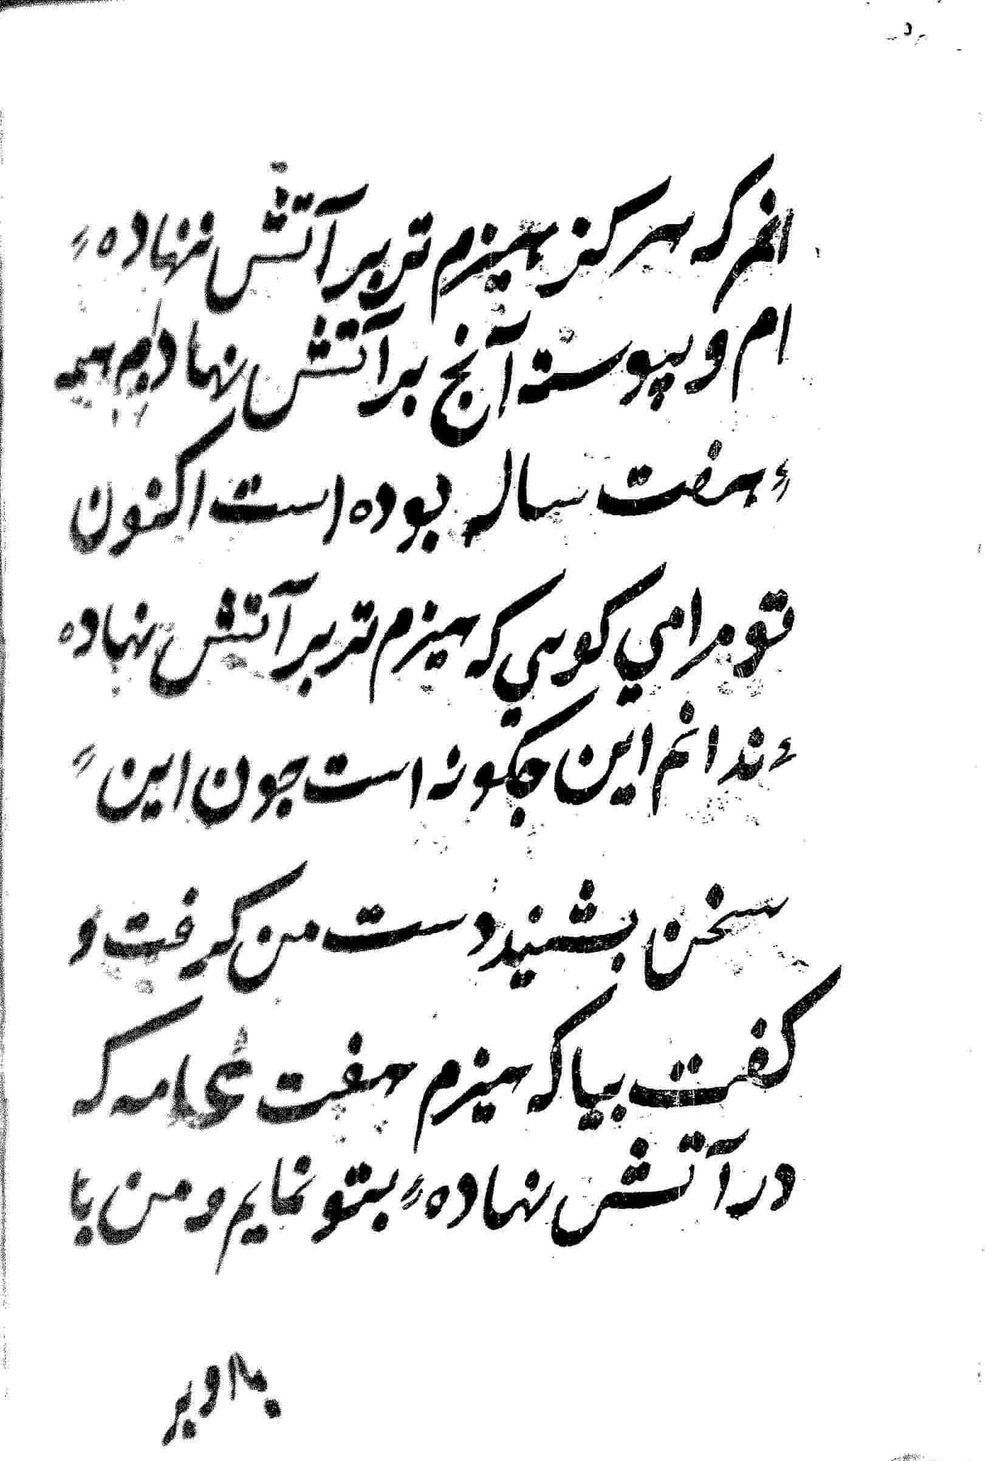 انم که هرکز هیزم تر بر آتش ننهاده ء
ام و پیوسته آنج بر آتش نهاده ام همه
ء هفت ساله بوده است اکنون
تو مرا می کویی که هیزم تر بر آتش نهاده
ء ندانم این جکونه است جون این ء
سخن بشنید دست من کرفت و
کفت بیا که هیزم هفت که
در آتش نهاده ء بتو نمایم و من با
با او بر